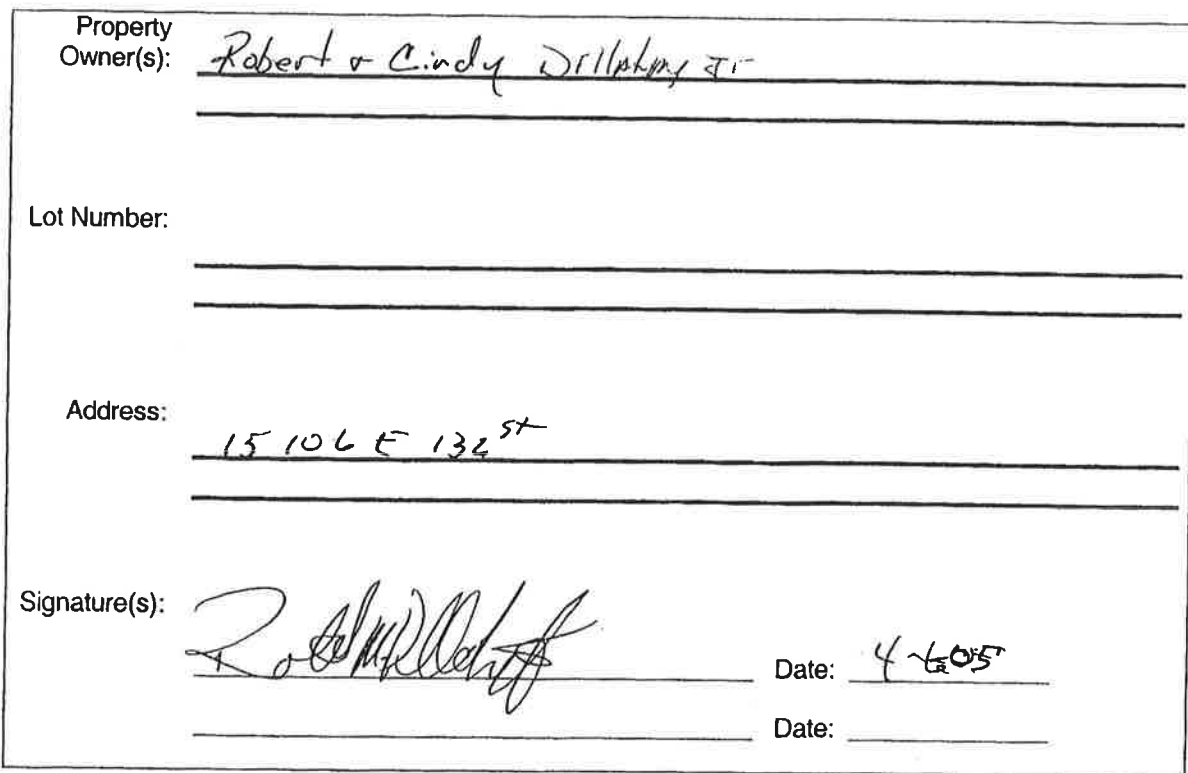 Property
Owner(s): Robert & Cindy Jr
Lot Number:
Address: 15106 E 132 st
Signature(s):
Date: 4
Date: